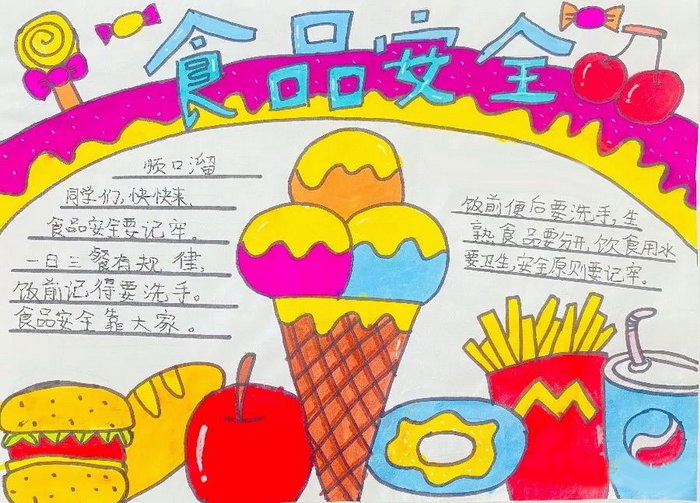 食品安全
顺口溜
同学们,快快来,
食品安全要记牢。
一日三餐有规律,
饭前记得要洗手。
食品安全靠大家。
饭前便后要洗手,生
熟食品要分开,饮食用水
要卫生,安全原则要记牢。